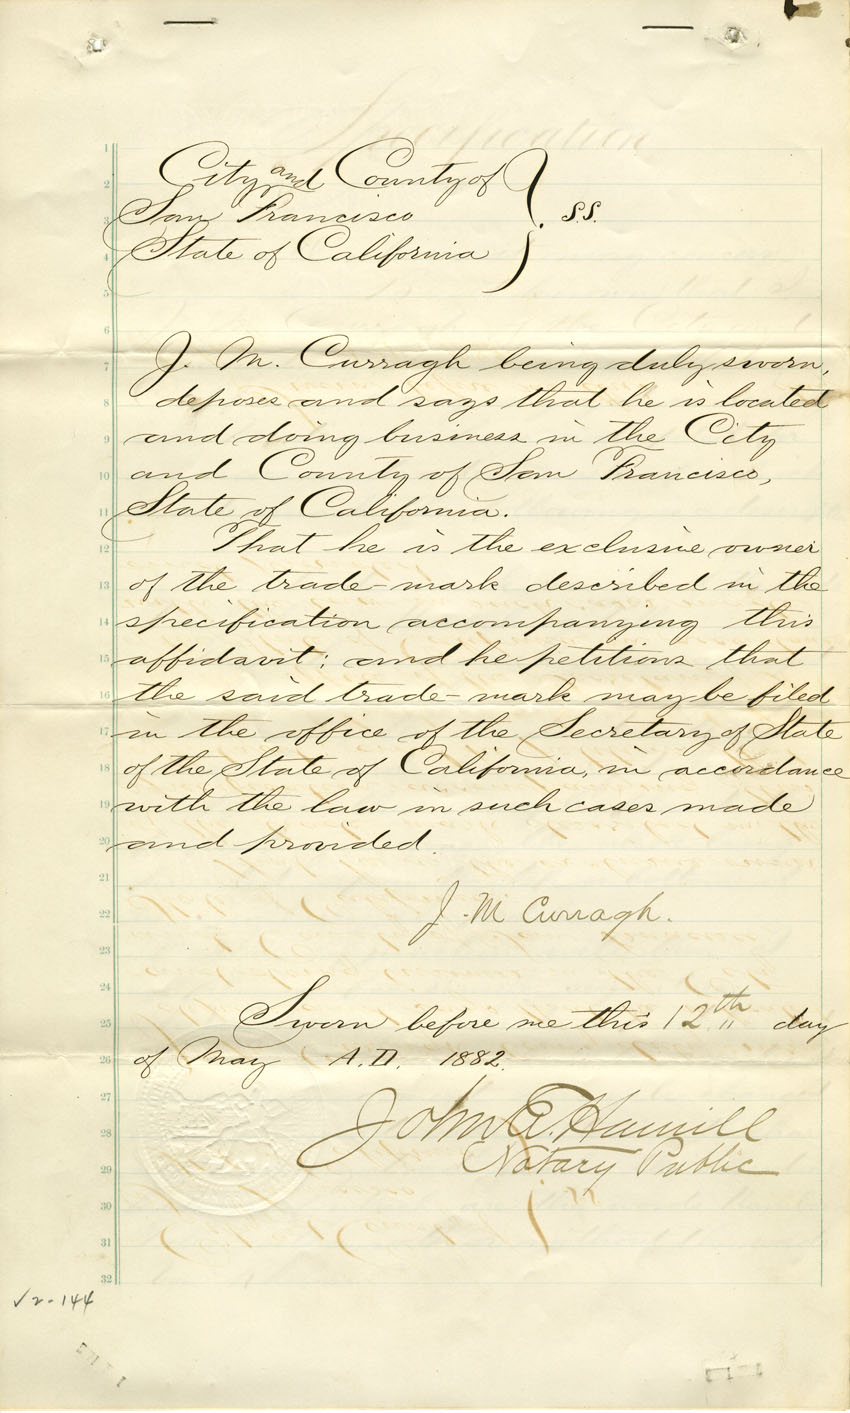 City and County of
San Francisco
State of California
} S.S.
J. M. Curragh being duly sworn,
deposes and says that he is located
and doing business in the City
and County of San Francisco,
State of California.
That he is the exclusive owner
of the trade-mark described in the
specification accompanying this
affidavit; and he petitions that
the said trade-mark may be filed
in the office of the Secretary of State
of the State of California, in accordance
with the law in such cases made
and provided.
J. M Curragh.
Sworn before me this 12th day
of May A.D. 1882.
John E. Hamill
Notary Public
1
2
3
4
5
6
7
8
9
10
11
12
13
14
15
16
17
18
19
20
21
22
23
24
25
26
27
28
29
30
31
32
√2-144